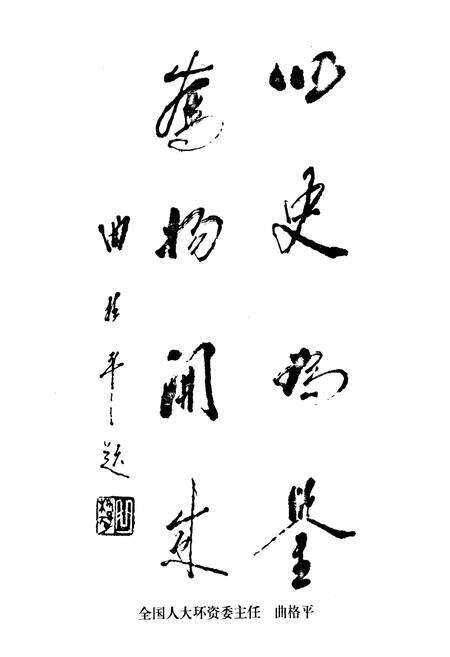 以史為鉴
物開
曲格平题
全国人大环资委主任 曲格平